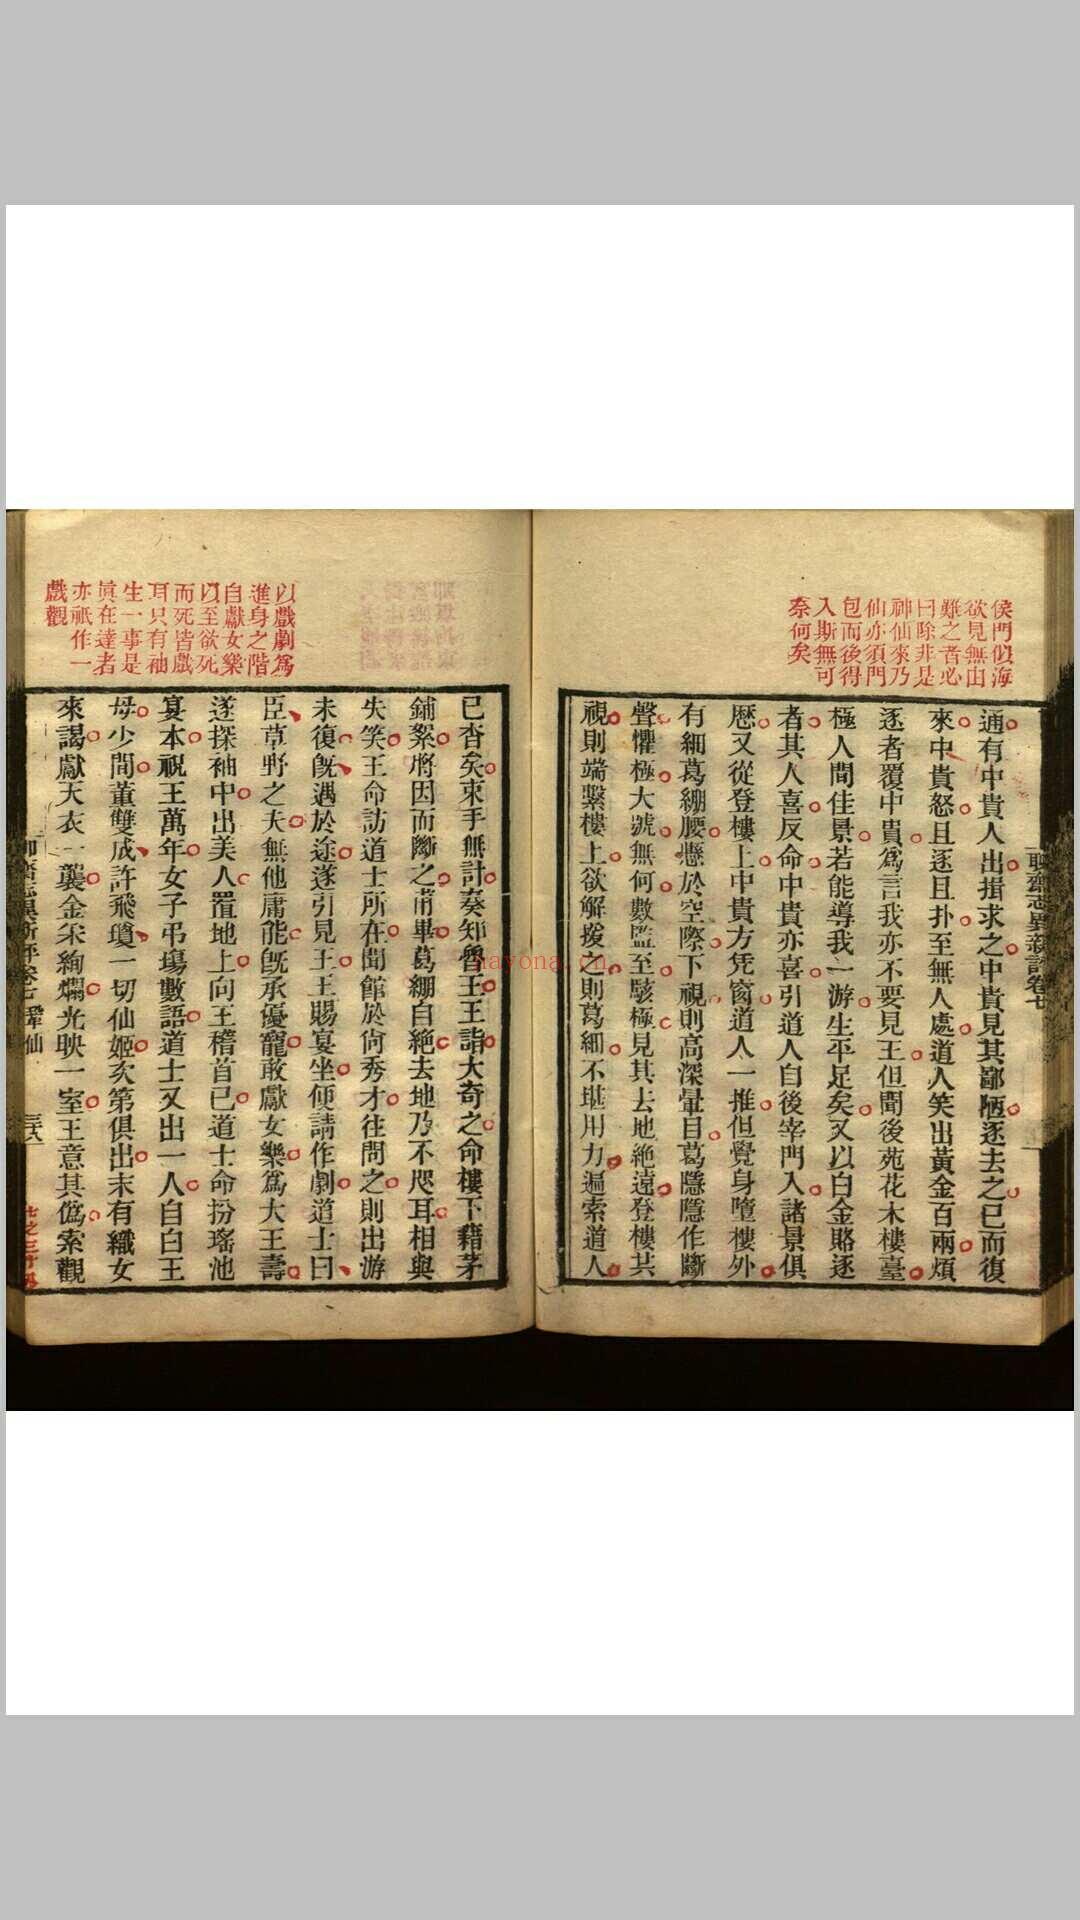 侯門似海
欲見無由
難之者必
曰除非是
神仙來乃
仙亦須門
包而後得
入斯無可
奈何矣
聊齋志異新評卷七
通有中貴人出揖求之中貴見其鄙陋逐去之已而復
來中貴怒且逐且扑至無人處道人笑出黃金百兩煩
逐者覆中貴爲言我亦不要見王但聞後苑花木樓臺
極人間佳景若能導我一游生平足矣又以白金賂逐
者其人喜反命中貴亦喜引道人自後宰門入諸景俱
歷又從登樓上中貴方凭窗道人一推但覺身墮樓外
有細葛繃腰懸於空際下視則高深暈目葛隱隱作斷
聲懼極大號無何數監至駭極見其去地絕遠登樓共
視則端繫樓上欲解援之則葛細不堪用力遍索道人
以戲劇爲
進身之階
自獻女樂
以至欲死
而死皆戲
耳只有袖
生一事是
眞在達者
亦祇作一
戲觀
已杳矣束手無計奏知魯王王詣大奇之命樓下藉茅
鋪絮將因而斷之甫畢葛繃自絕去地乃不咫耳相與
失笑王命訪道士所在聞館於尙秀才往問之則出游
未復旣遇於途遂引見王王賜宴坐便請作劇道士曰
臣草野之夫無他庸能旣承優寵敢獻女樂爲大王壽
遂探袖中出美人置地上向王稽首已道士命扮瑤池
宴本祝王萬年女子弔場數語道士又出一人自白王
母少間董雙成許飛瓊一切仙姬次第俱出末有織女
來謁獻天衣一襲金朵絢爛光映一室王意其僞索觀
鞏仙
三八
nayona.cn